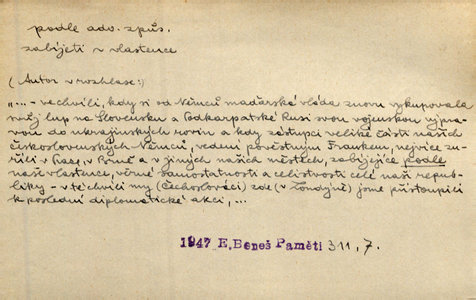 podle adv. způs.
zabíjeti v vlastence
(Autor v rozhlase:)
„... - ve chvíli, kdy si od Němců maďarská vláda znovu vykupovala
svůj lup na Slovensku a Podkarpatské Rusi svou vojenskou výpra-
vou do ukrajinských rovin a kdy zástupci veliké části našich
československých Němců, vedeni pověstným Frankem, nejvíce zu-
řili v Praze, v Brně a v jiných našich městech, zabíjejíce podle
naše vlastence, věrné samostatnosti a celistvosti celé naší repub-
liky - v té chvíli my (Čechoslováci) zde (v Londýně) jsme přistoupili
k poslední diplomatické akci, ...
1947 E. Beneš Paměti 311, 7.